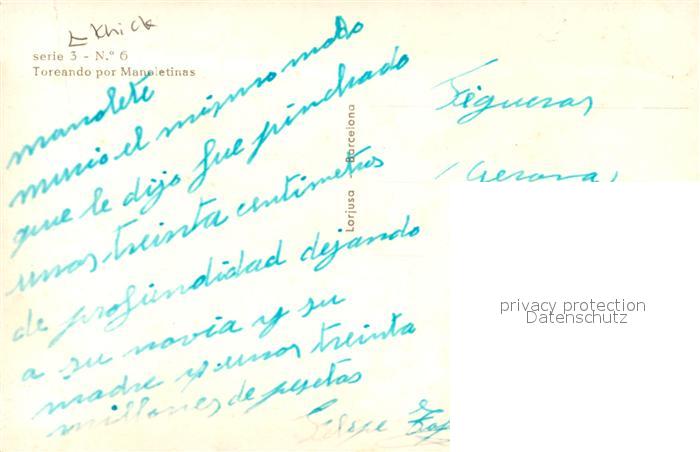 serie 3 - N.º 6
Toreando por Manoletinas
manolete
murio el mismo modo
que le dijo fue pinchado
unos treinta centimetros
de profundidad dejando
a su novia y su
madre y unos treinta
millones de pesetas
Felipe
Lorjusa - Barcelona
Figueras
(Gerona)
privacy protection
Datenschutz